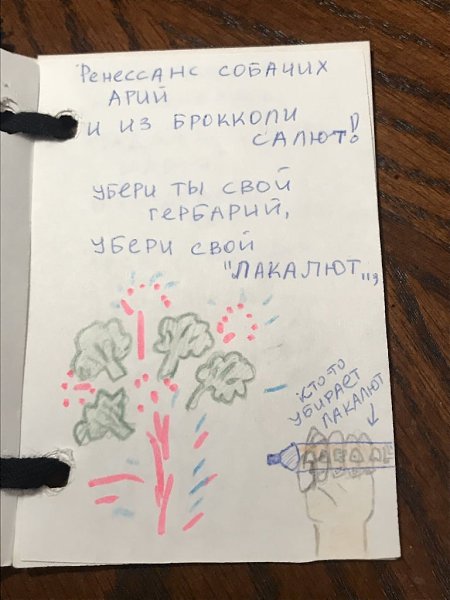 Ренессанс собачих
арий
и из брокколи
салют!
убери ты свой
гербарий,
убери свой
"Лакалют",,
кто-то
убирает
лакалют